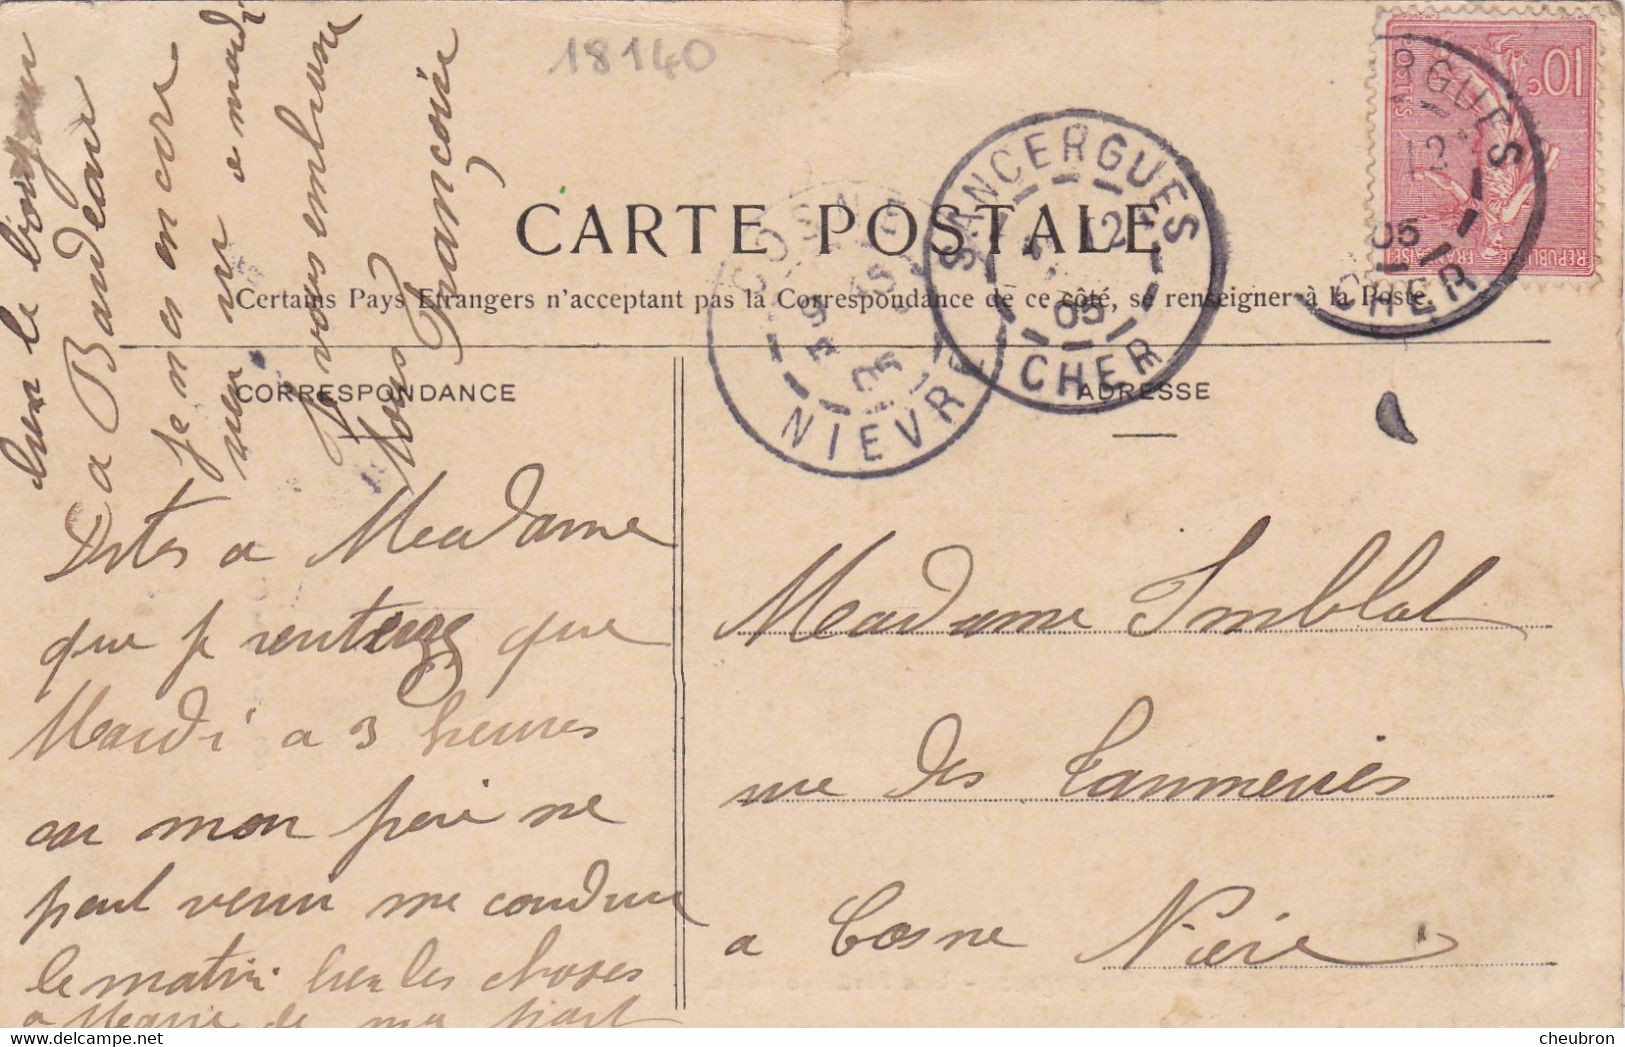 18140
CARTE POSTALE
Certains Pays Etrangers n'acceptant pas la Correspondance de ce côté, se renseigner à la Poste
CORRESPONDANCE
ADRESSE
SANCERGUES
12
05
CHER
COSNE
05
NIEVRE
RGUES
12
05
CHER
10c
POSTES
REPUBLIQUE FRANÇAISE
Dites a Madame
que je rentrerez que
Mardi a 3 heures
car mon père ne
peut venir me conduire
le matin bien les choses
a Marie de ma part
bien le bonjour
a Baudeau
Je n es encore
rien vu a mardi
Je vous embrasse
tous Françoise
Madame Imblot
rue des Tanneries
a Cosne Nièvre
cheubron.com